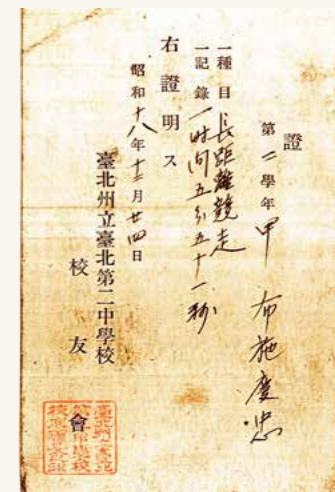 證
第二學年甲 布施慶忠
一種目 長距離競走
一記錄 一時間五分五十一秒
右證明ス
昭和十八年十二月廿四日
臺北州立臺北第二中學校
校友會